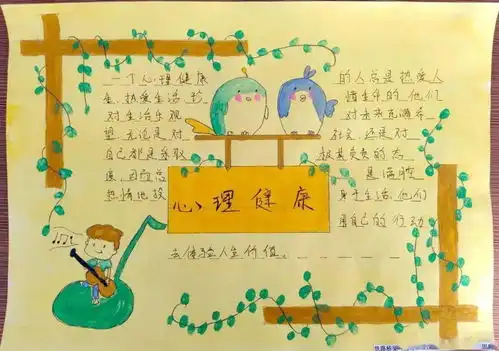 一个心理健康 的人总是热爱人
生,热爱生活,珍 惜生命的,他们
对生活乐观 对未来充满希
望,无论是对 社会,还是对
自己都是采取 极其负责的态
度,因而总 是满腔
热情地投 身于生活,他们
用自己的行动
心理健康
去体验人生价值。